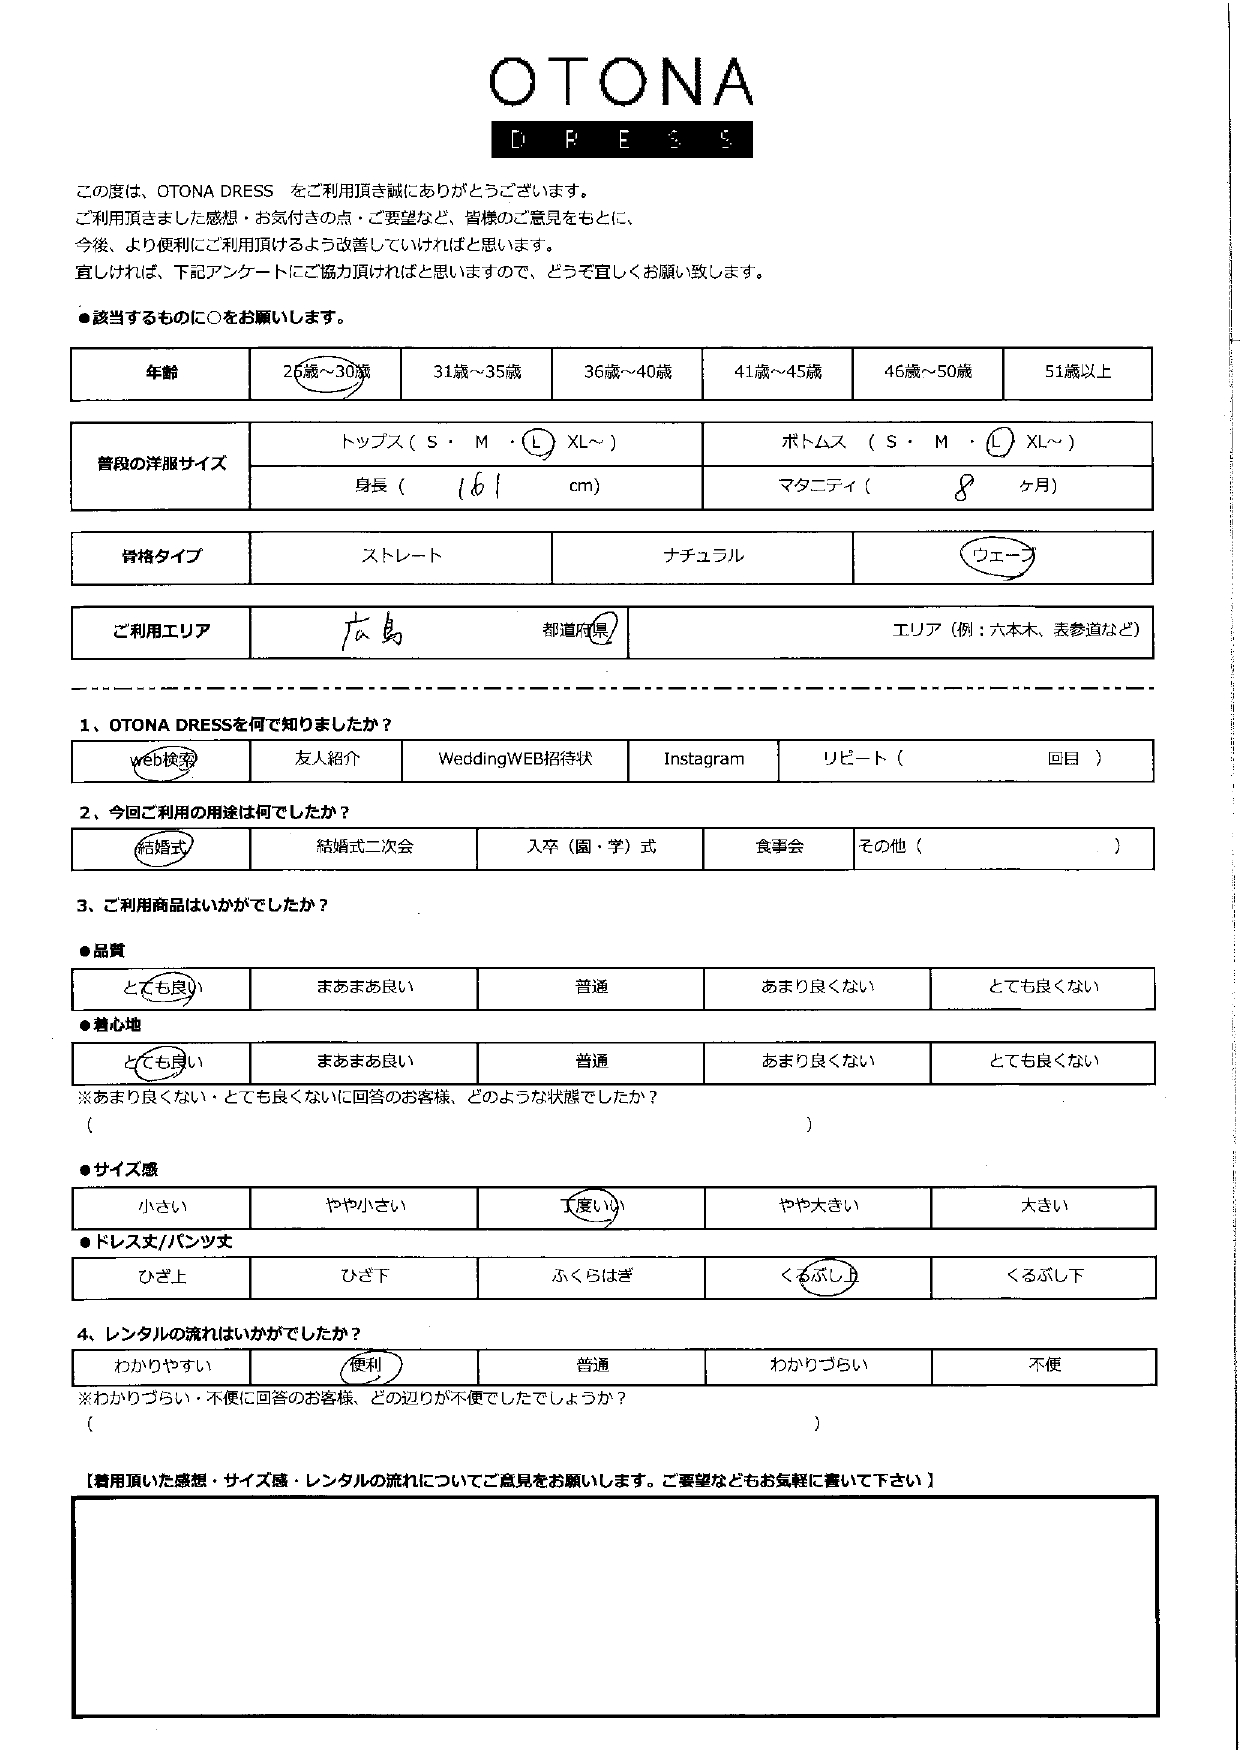 OTONA
DRESS
この度は、OTONA DRESS　をご利用頂き誠にありがとうございます。
ご利用頂きました感想・お気付きの点・ご要望など、皆様のご意見をもとに、
今後、より便利にご利用頂けるよう改善していければと思います。
宜しければ、下記アンケートにご協力頂ければと思いますので、どうぞ宜しくお願い致します。
●該当するものに○をお願いします。
年齢 26歳～30歳 31歳～35歳 36歳～40歳 41歳～45歳 46歳～50歳 51歳以上
普段の洋服サイズ
トップス ( S ・ M ・ L XL～ ) ボトムス ( S ・ M ・ L XL～ )
身長 ( 161 cm) マタニティ ( 8 ヶ月)
骨格タイプ ストレート ナチュラル ウェーブ
ご利用エリア 広島 都道府県 エリア（例：六本木、表参道など）
1、OTONA DRESSを何で知りましたか？
web検索 友人紹介 WeddingWEB招待状 Instagram リピート（ 回目 ）
2、今回ご利用の用途は何でしたか？
結婚式 結婚式二次会 入卒（園・学）式 食事会 その他（ ）
3、ご利用商品はいかがでしたか？
●品質
とても良い まあまあ良い 普通 あまり良くない とても良くない
●着心地
とても良い まあまあ良い 普通 あまり良くない とても良くない
※あまり良くない・とても良くないに回答のお客様、どのような状態でしたか？
（ ）
●サイズ感
小さい やや小さい 丁度いい やや大きい 大きい
●ドレス丈/パンツ丈
ひざ上 ひざ下 ふくらはぎ くるぶし上 くるぶし下
4、レンタルの流れはいかがでしたか？
わかりやすい 便利 普通 わかりづらい 不便
※わかりづらい・不便に回答のお客様、どの辺りが不便でしたでしょうか？
（ ）
【着用頂いた感想・サイズ感・レンタルの流れについてご意見をお願いします。ご要望などもお気軽に書いて下さい】